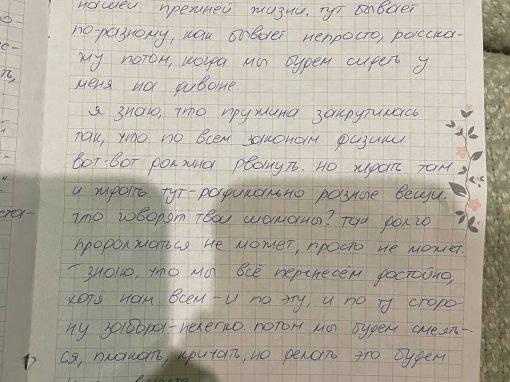 нашей прежней жизни. тут бывает
по-разному, как бывает непросто, расска-
жу потом, когда мы будем сидеть у
меня на диване.
я знаю, что пружина закрутилась
так, что по всем законам физики
вот-вот должна рвануть. но ждать там
и ждать тут - радикально разные вещи.
что говорят твои шаманы? так долго
продолжаться не может, просто не может.
я знаю, что мы всё перенесём достойно,
хотя нам всем - и по эту, и по ту сторо-
ну забора - нелегко. потом мы будем смеять-
ся, плакать, кричать, но делать это будем